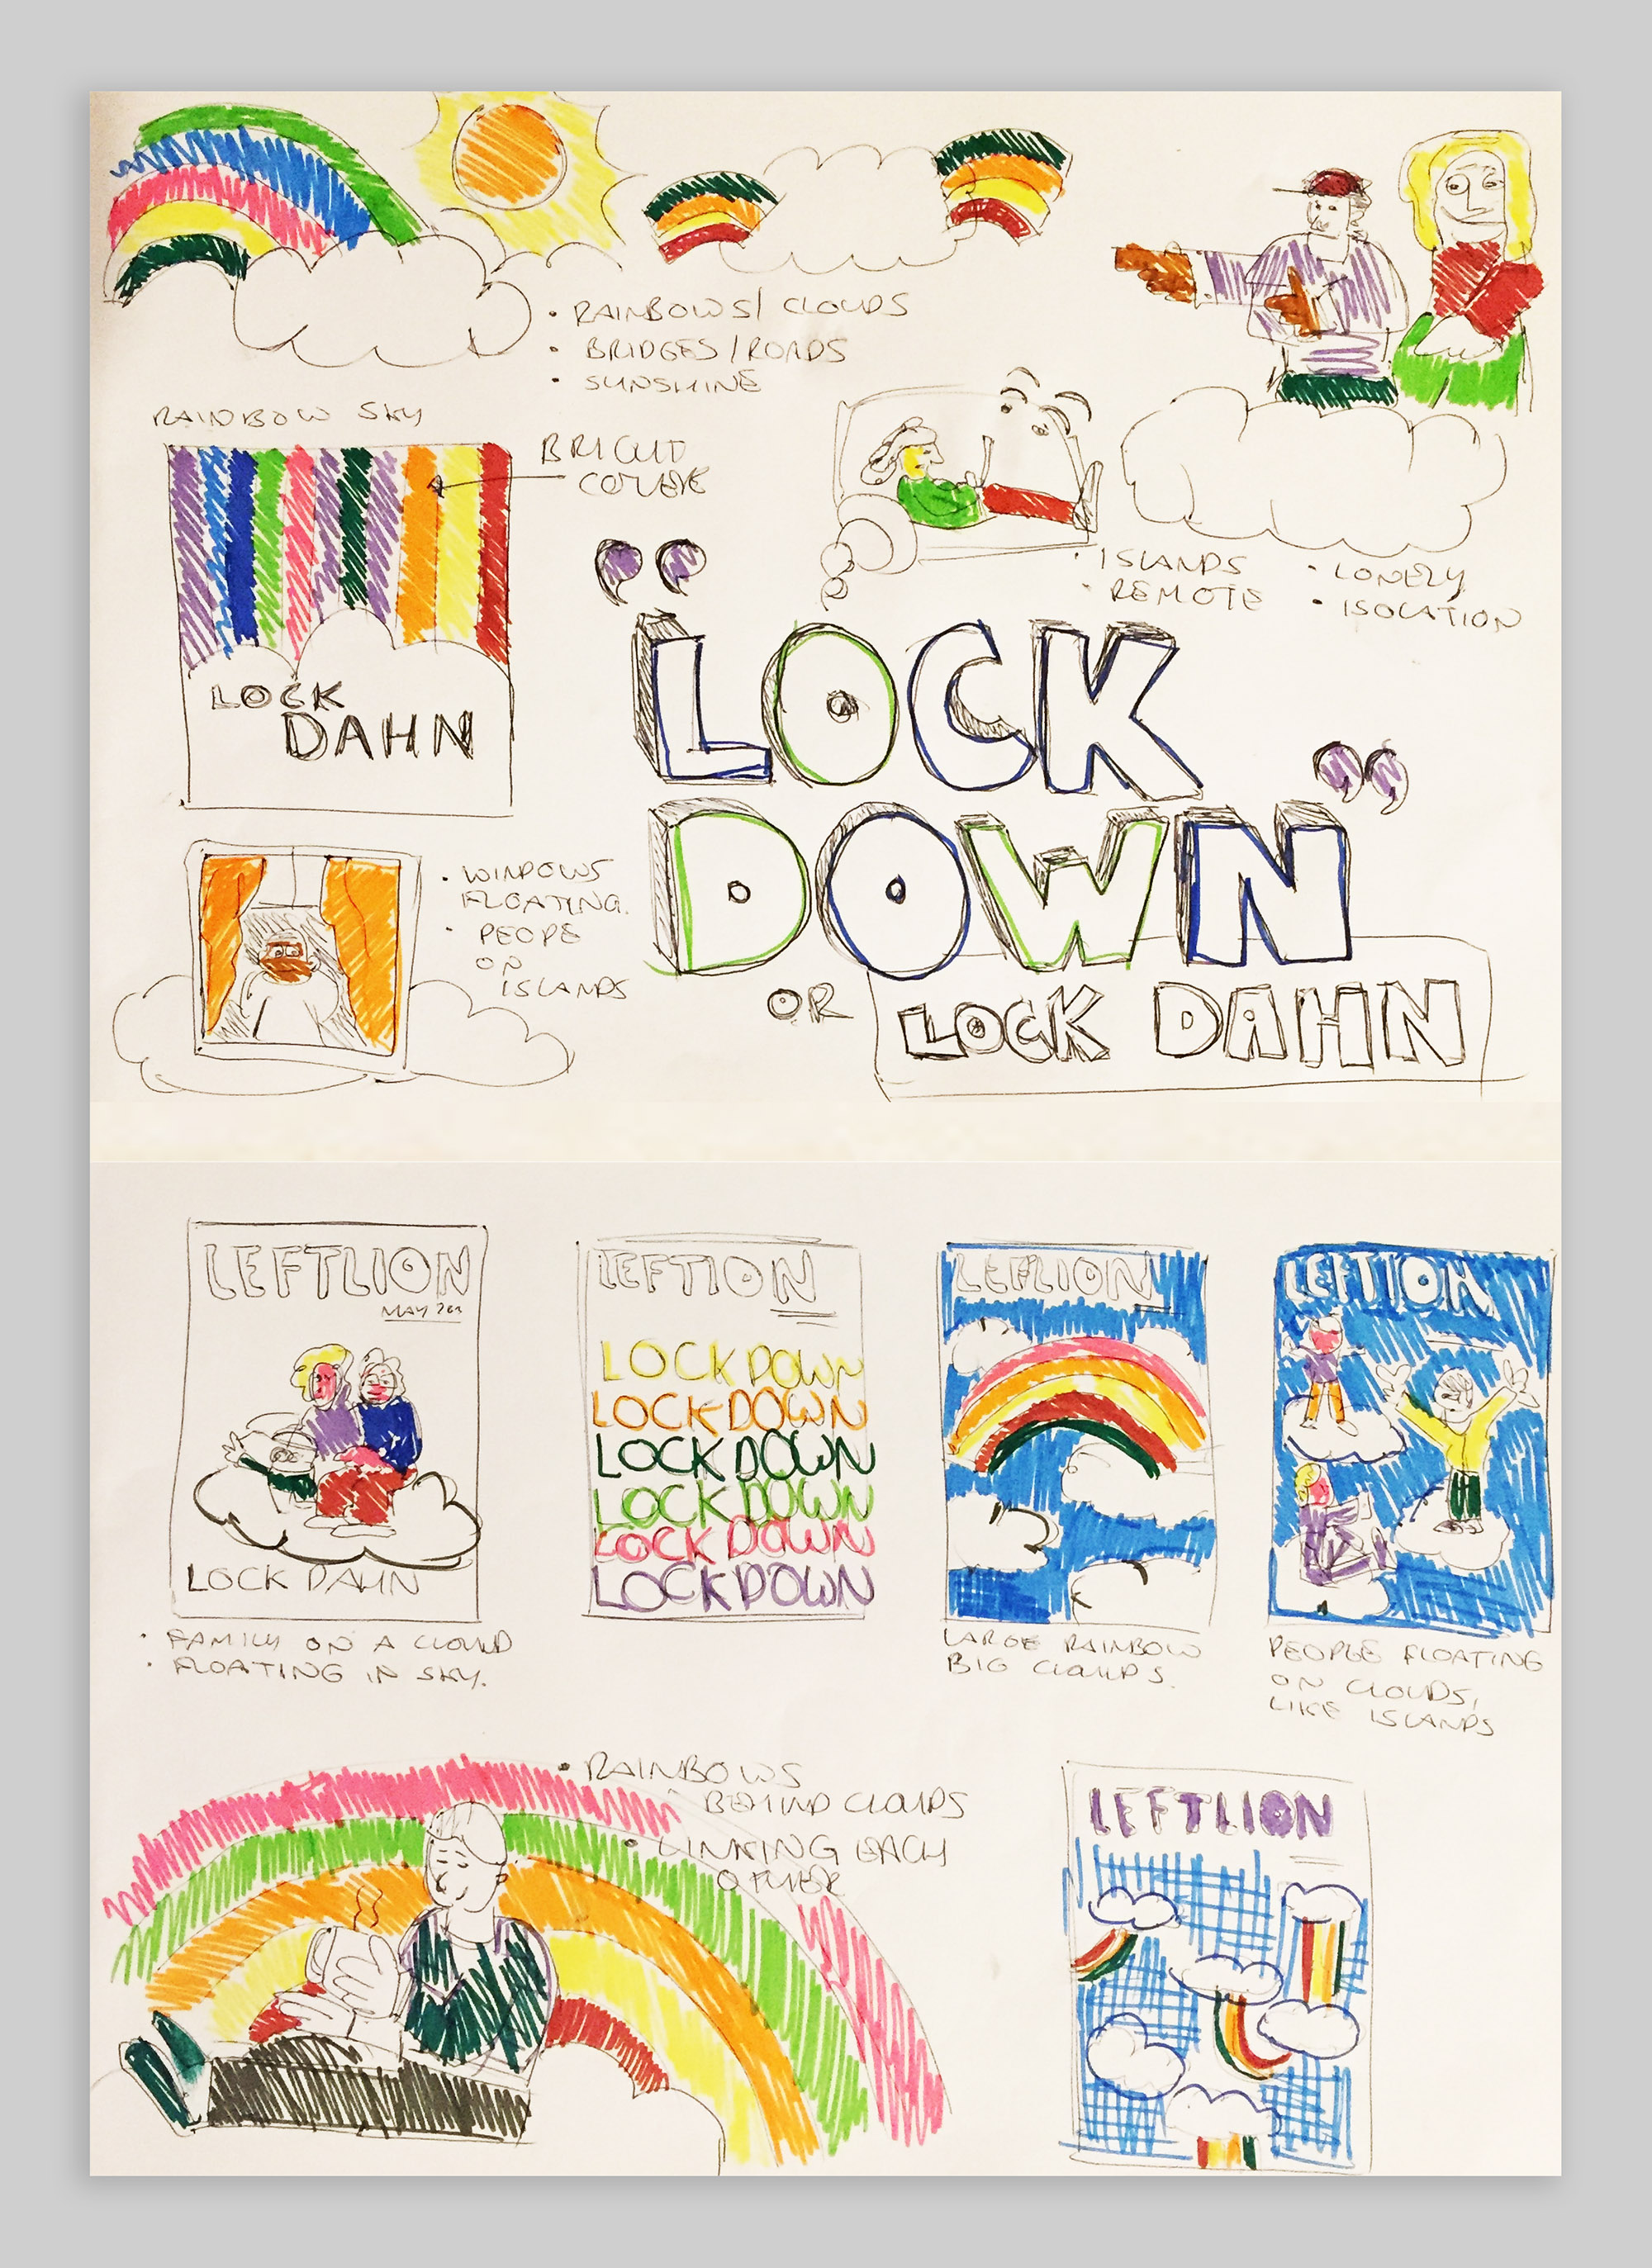 • RAINBOWS / CLOUDS
• BRIDGES / ROADS
• SUNSHINE
RAINBOW SKY
BRIGHT
LOCK
DAHN
• ISLANDS
• REMOTE
• LONELY
• ISOLATION
"LOCK
DOWN"
OR LOCK DAHN
• WINDOWS
FLOATING.
• PEOPE
ON
ISLANDS
LEFTLION
LOCK DAHN
• FAMILY ON A CLOUD
• FLOATING IN SKY.
LEFTION
LOCKDOWN
LOCKDOWN
LOCKDOWN
LOCKDOWN
LOCKDOWN
LOCKDOWN
LEFLION
LARGE RAINBOW
BIG CLOUDS.
LEFTION
PEOPLE FLOATING
ON CLOUDS,
LIKE ISLANDS
• RAINBOWS
BEHIND CLOUDS
• LINKING EACH
OTHER
LEFTLION